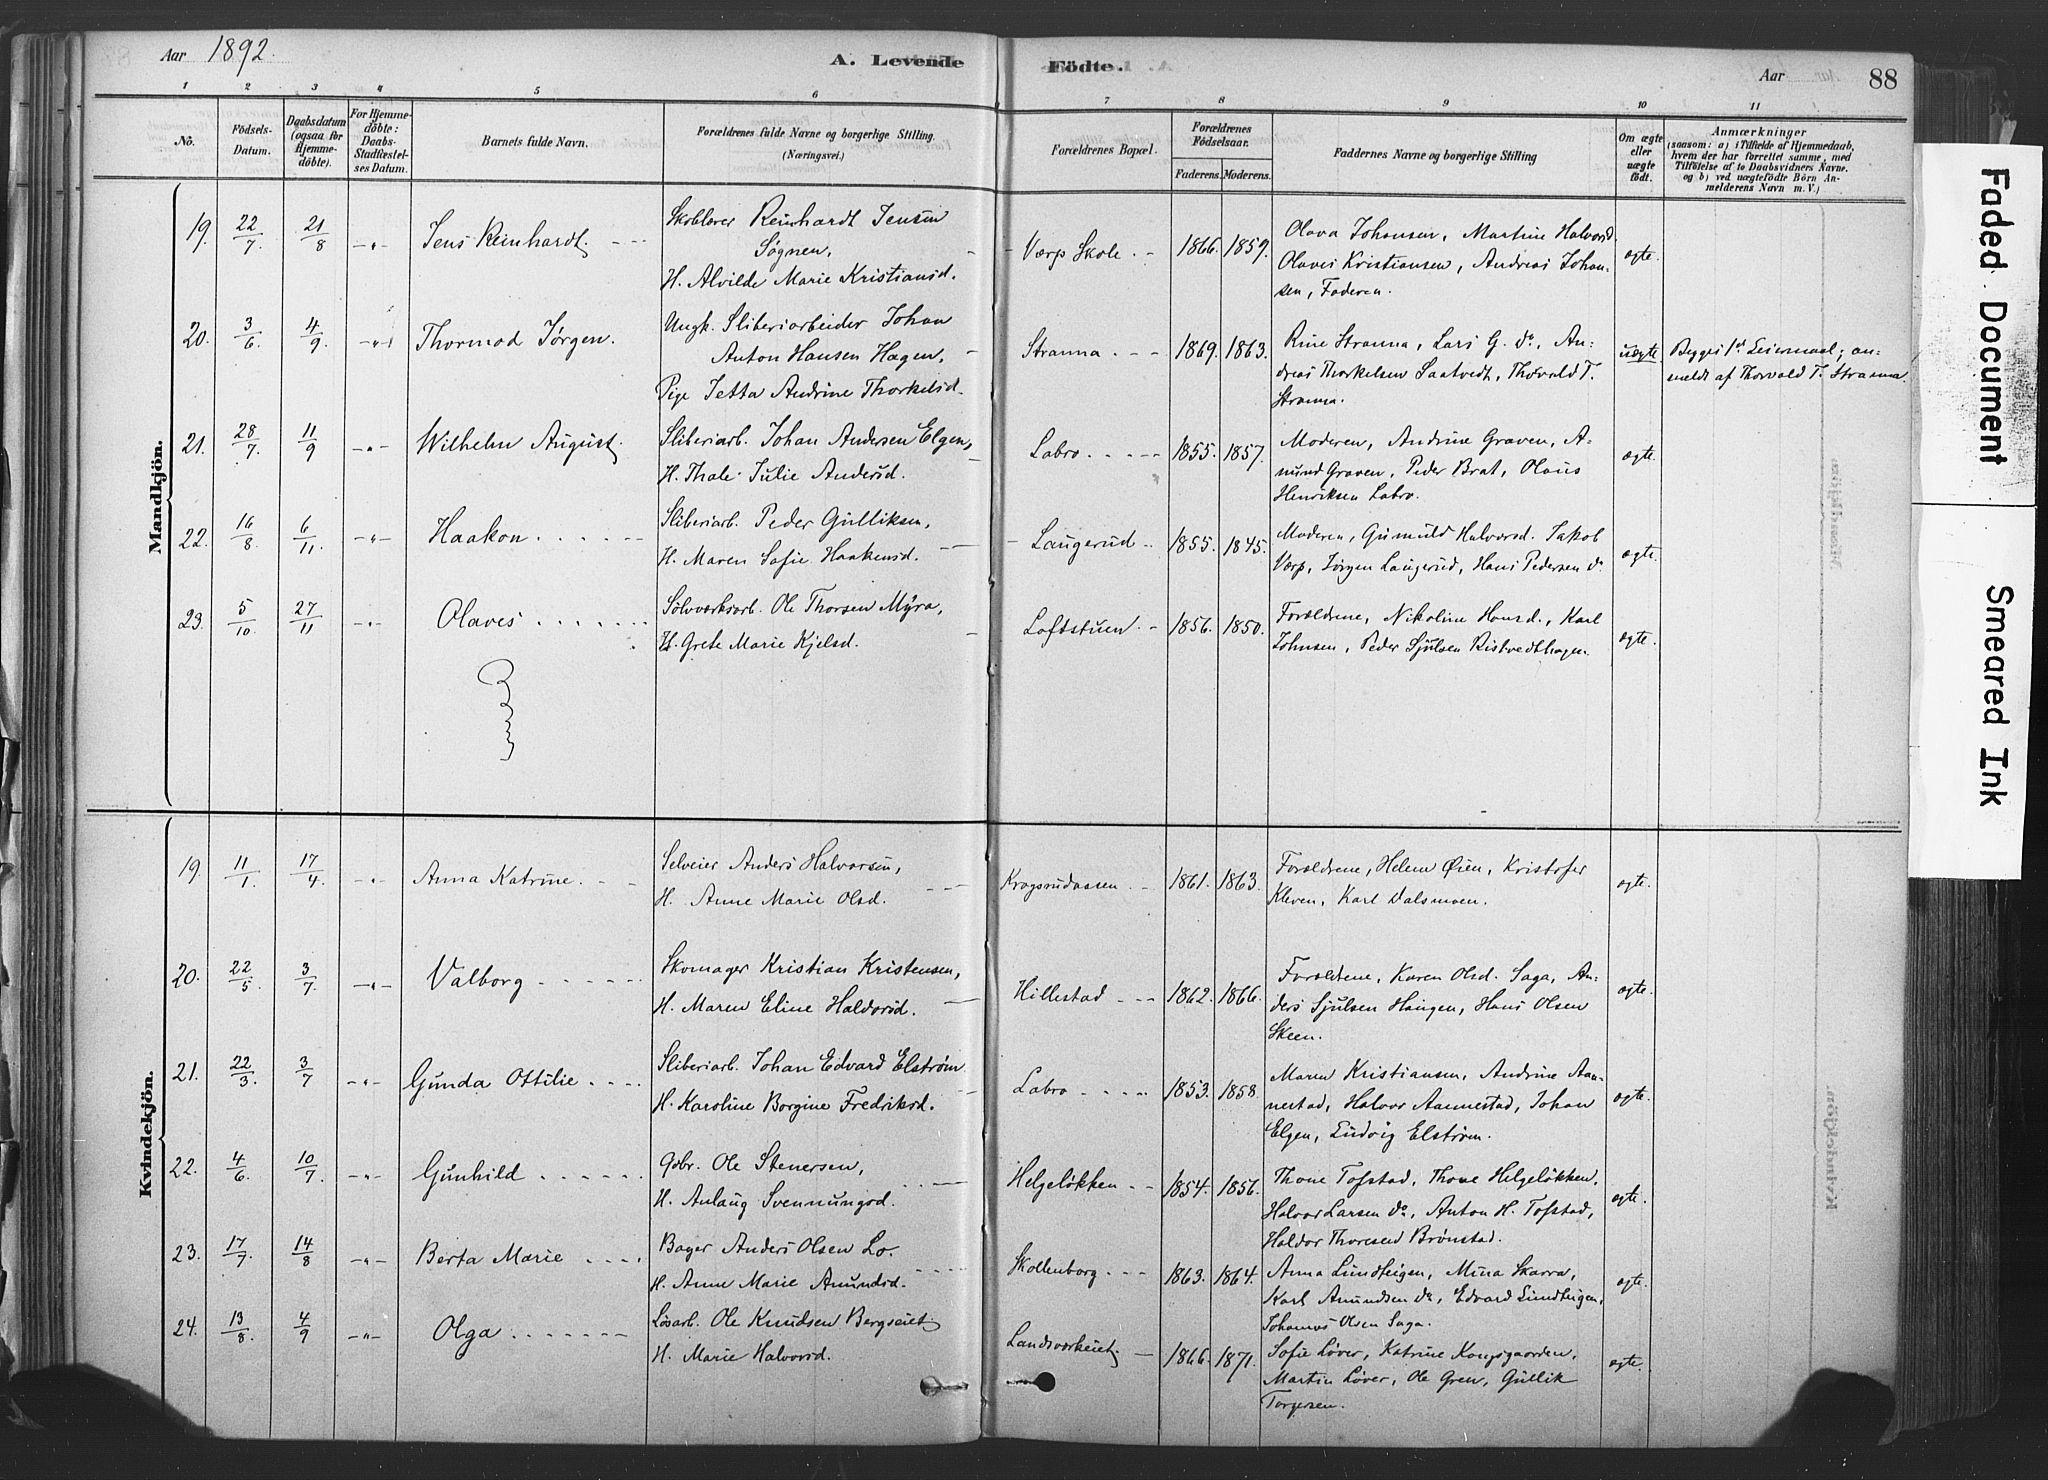 Aar 1892.
A. Levende Födte.
Aar
88
1 2 3 4 5 6 7 8 9 10 11
No.
Födsels-
Datum.
Daabsdatum
(ogsaa for
Hjemme-
döbte).
For Hjemme-
döbte:
Daabs-
Stadfæstel-
ses Datum.
Barnets fulde Navn.
Forældrenes fulde Navne og borgerlige Stilling.
(Næringsvei.)
Forældrenes Bopæl.
Forældrenes
Födselsaar.
Faderens. Moderens.
Faddernes Navne og borgerlige Stilling
Om ægte
eller
uægte
födt.
Anmærkninger
(saasom: a) i Tilfælde af Hjemmedaab,
hvem der har forrettet samme, med
Tilföielse af to Daabsvidners Navne.
og b) ved uægtefödte Börn An-
melderens Navn m. V.)
Mandkjön.
19. 22/7 21/8 -"- Jens Reinhardt.
Skolelærer Reinhardt Jensen
Søgnen,
H. Alvilde Marie Kristiansd.
Værp Skole. 1866. 1859.
Olava Johansen, Martine Halvorsd.
Olaves Kristiansen, Andreas Johan-
sen, Faderen.
ægte.
20. 3/6 4/9 -"- Thormod Jørgen.
Ungk. Sliberiarbeider Johan
Anton Hansen Hagen,
Pige Jetta Andrine Thorkelsd.
Stranna. 1869. 1863.
Rine Stranna, Lars G. do, An-
dreas Thorkelsen Saatvedt, Thorvald T.
Stranna.
uægte.
Begges 1st Leiermaal; an-
meldt af Thorvald T. Stranna.
21. 28/7 11/9 -"- Wilhelm August.
Sliberiarb. Johan Andersen Elgen,
H. Thale Julie Andersd.
Labro. 1855. 1857.
Moderen, Andrine Graven, A-
mund Graven, Peder Brat, Olaus
Henriksen Labro.
ægte.
22. 16/8 6/11 -"- Haakon.
Sliberiarb. Peder Gulliksen,
H. Maren Sofie Haakensd.
Laugerud. 1855. 1845.
Moderen, Gunuld Halvorsd. Jakob
Værp, Jørgen Laugerud, Hans Pedersen do
ægte.
23. 5/10 27/11 -"- Olaves.
Sølvværksarb. Ole Thorsen Myra,
H. Grete Marie Kjelsd.
Loftstuen. 1856. 1850.
Forældrene, Nikoline Hansd., Karl
Johnsen, Peder Sjulsen Ristvedthagen.
ægte.
Kvindekjön.
19. 11/1 17/4 -"- Anna Katrine.
Selveier Anders Halvorsen,
H. Anne Marie Olsd.
Kragsrudaasen. 1861. 1863.
Forældrene, Helene Øien, Kristofer
Kleven, Karl Dalsmoen.
ægte.
20. 22/5 3/7 -"- Valborg
Skomager Kristian Kristensen,
H. Maren Eline Haldorsd.
Hillestad 1862. 1866.
Forældrene, Karen Olsd. Saga, An-
ders Sjulsen Haugen, Hans Olsen
Skeen.
ægte.
21. 22/3. 3/7 -"- Gunda Ottilie.
Sliberiarb. Johan Edvard Elstrøm.
H. Karoline Borgine Fredriksd.
Labro 1853. 1858.
Maren Kristiansen, Andrine Aan-
nestad, Halvor Aannestad, Johan
Elgen, Ludvig Elstrøm.
ægte.
22. 4/6 10/7 -"- Gunhild
Gdbr. Ole Stenersen,
H. Anlaug Svennungsd.
Helgeløkken 1854. 1856.
Thone Tofstad, Thone Helgeløkken,
Halvor Larsen do, Anton H. Tofstad,
Haldor Thoresen Brønstad.
ægte.
23. 17/7. 14/8 -"- Berta Marie
Bager Anders Olsen Lo.
H. Anne Marie Amundsd.
Skollenborg 1863. 1864.
Anna Lundteigen, Mina Skarra,
Karl Amundsen do, Edvard Lundteigen,
Johannes Olsen Saga.
ægte.
24. 13/8. 4/9 -"- Olga
Løsarb. Ole Knudsen Bergseiet,
H. Marie Halvorsd.
Landsverkeiet, 1866. 1871.
Sofie Løver, Katrine Kongsgaarden,
Martin Løver, Ole Gren, Gullik
Torgersen.
ægte.
Faded Document
Smeared Ink